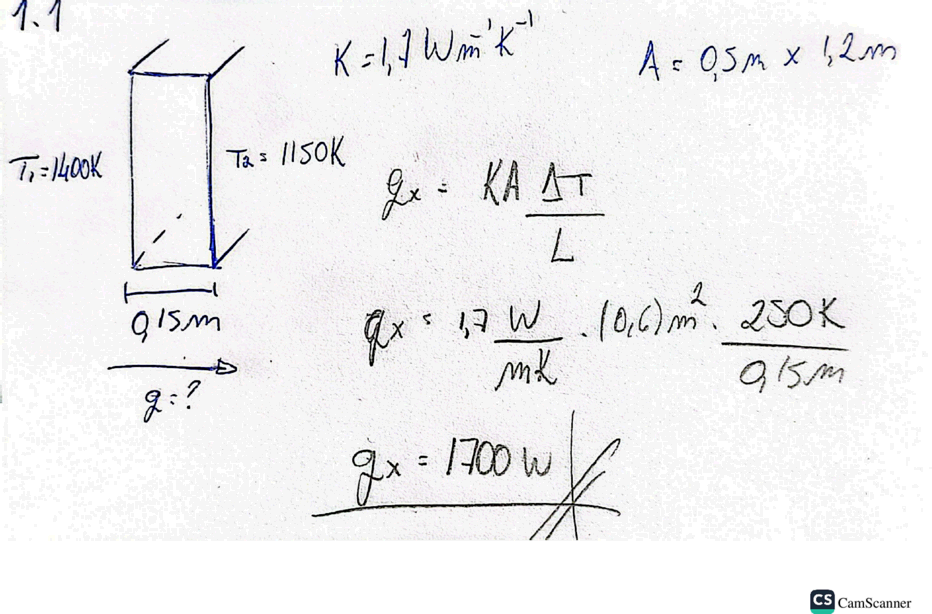 1.1
K = 1,7 W m⁻¹ K⁻¹
A = 0,5m x 1,2m
T₁ = 1400K
T₂ = 1150K
qx = KA ΔT / L
0,15m
qx = 1,7 W/mK . (0,6) m² . 250K / 0,15m
q = ?
qx = 1700 W
CS CamScanner